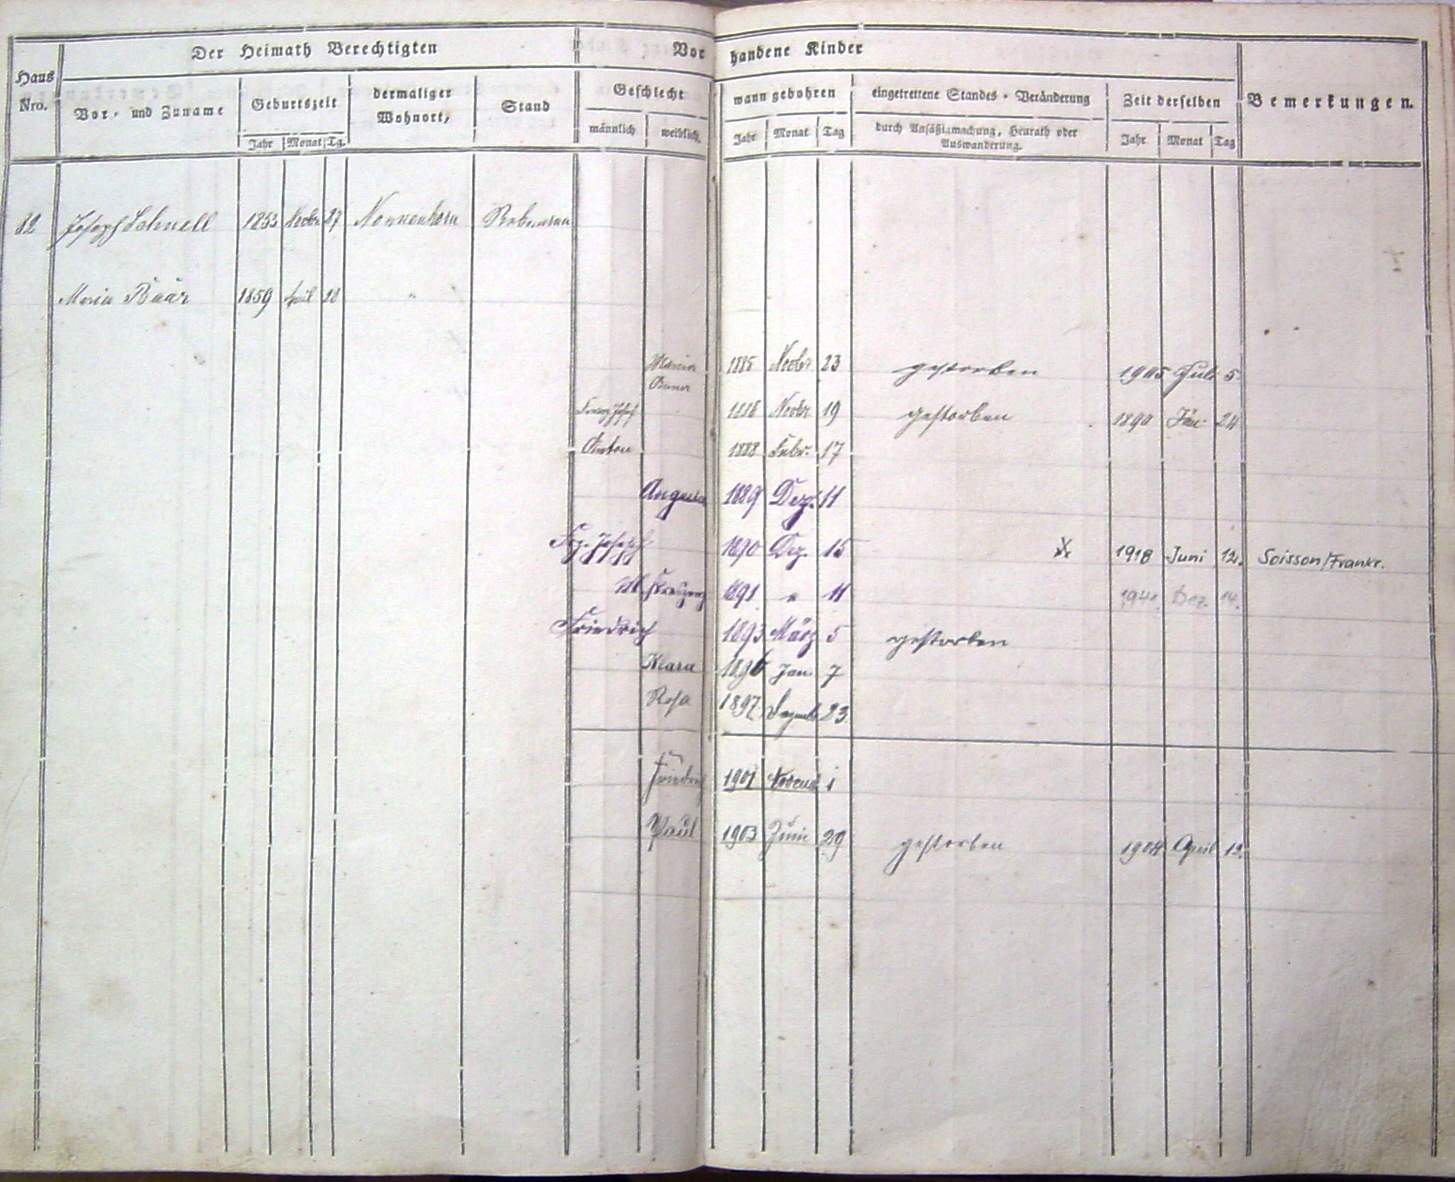 Der Heimath Berechtigten
Vorhandene Kinder
Haus Nro.
Vor- und Zuname
Geburtszeit
Jahr Monat Tg.
dermaliger Wohnort,
Stand
Geschlecht
männlich weiblich.
wann gebohren
Jahr Monat Tag
eingetrettene Standes - Veränderung
durch Ansäßigmachung, Heurath oder
Auswanderung.
Zeit derselben
Jahr Monat Tag
Bemerkungen.
82 Joseph Schnell 1853 Novbr 27 Nonnenhorn Rebmann
Maria 1859 April 28 "
Maria Anna 1885 Novbr 23 gestorben 1905 Juli 5
Franz Josef 1886 Novbr 19 gestorben 1890 Jän. 24
Anton 1888 Febr. 17
Augusta 1889 Dez. 11
Frz. Joseph 1890 Dez. 15 1918 Juni 12. Soisson/Frankr.
M. Kreszenz 1891 " 11 Dez. 14.
Friedrich 1893 März 5 gestorben
Klara 1896 Jan. 7
Rosa 1897 23
Friedrich 1901 Novemb 1
Paul 1903 Juni 29 gestorben 1904 April 12.